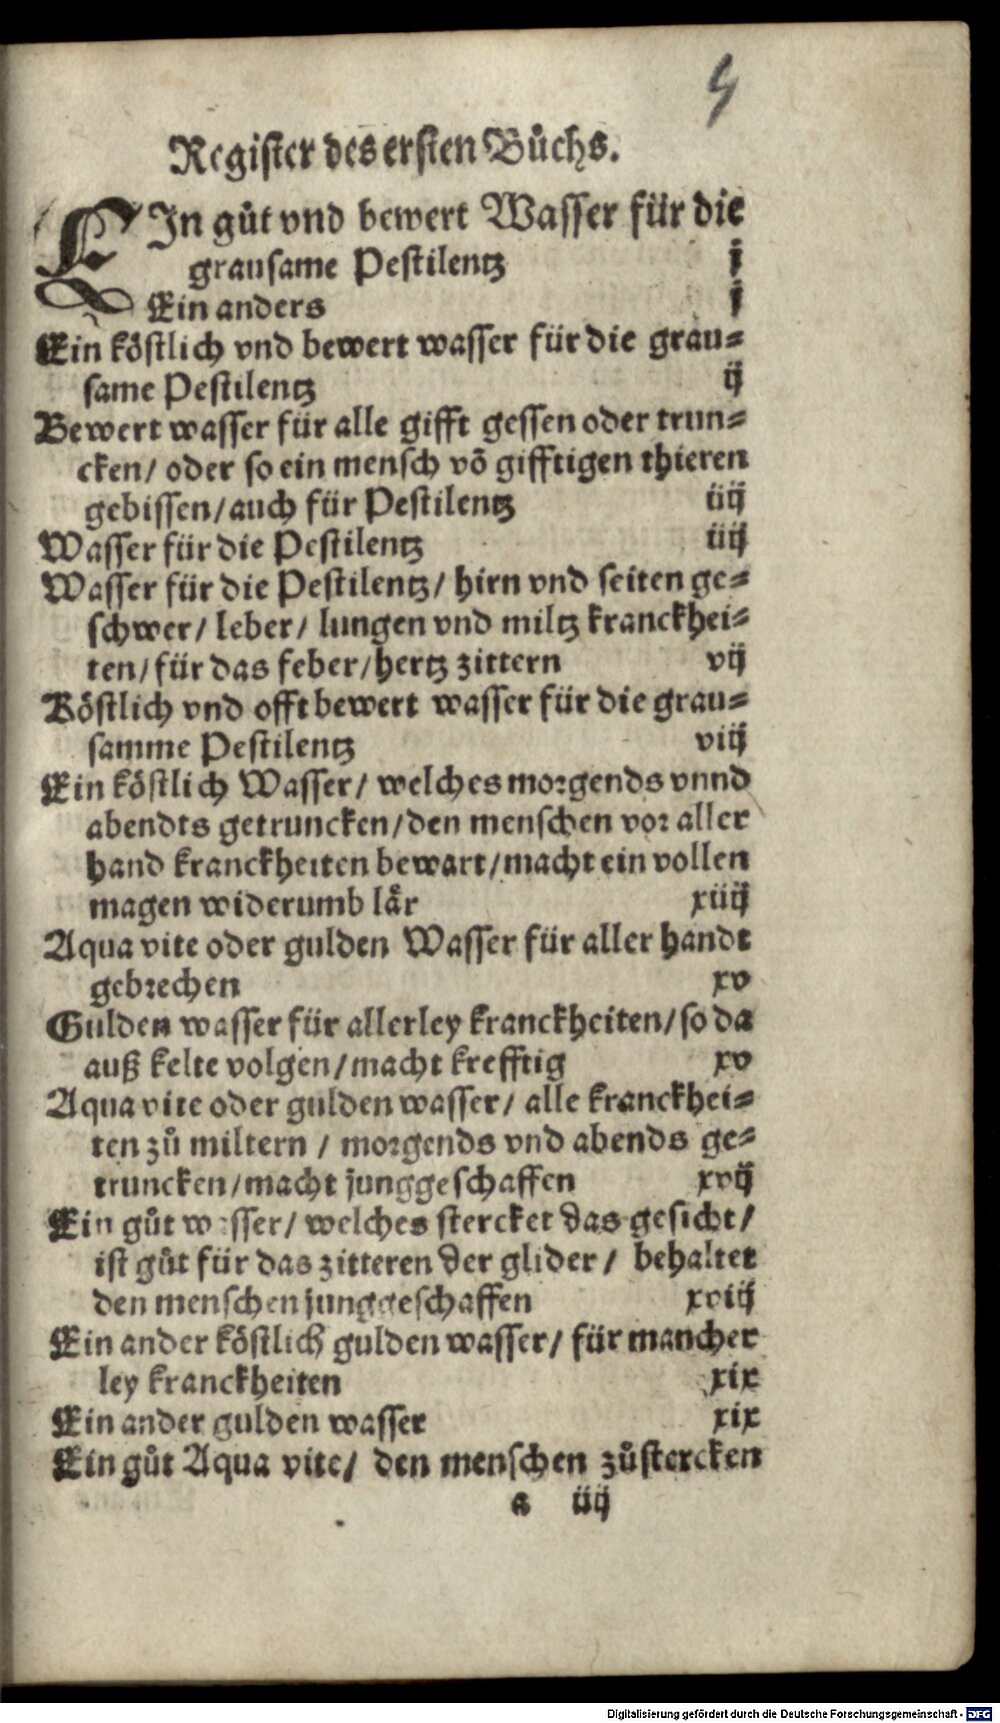 5
Register des ersten Bůchs.
EIn gůt vnd bewert Wasser für die
grausame Pestilentz j
Ein anders j
Ein köstlich vnd bewert wasser für die grau⸗
same Pestilentz ij
Bewert wasser für alle gifft gessen oder trun⸗
cken/ oder so ein mensch võ gifftigen thieren
gebissen/auch für Pestilentz iiij
Wasser für die Pestilentz iiij
Wasser für die Pestilentz/ hirn vnd seiten ge⸗
schwer/ leber/ lungen vnd miltz kranckhei⸗
ten/für das feber/hertz zittern vij
Köstlich vnd offt bewert wasser für die grau⸗
samme Pestilentz viij
Ein köstlich Wasser/ welches morgends vnnd
abendts getruncken/den menschen vor aller
hand kranckheiten bewart/macht ein vollen
magen widerumb lår xiiij
Aqua vite oder gulden Wasser für aller handt
gebrechen xv
Gulden wasser für allerley kranckheiten/so da
auß kelte volgen/macht krefftig xv
Aqua vite oder gulden wasser/ alle kranckhei⸗
ten zů miltern / morgends vnd abends ge⸗
truncken/macht junggeschaffen xvij
Ein gůt wasser/ welches stercket das gesicht/
ist gůt für das zitteren der glider/ behaltet
den menschen junggeschaffen xviij
Ein ander köstlich gulden wasser/ für mancher
ley kranckheiten xix
Ein ander gulden wasser xix
Ein gůt Aqua vite/ den menschen zůstercken
a iiij
Digitalisierung gefördert durch die Deutsche Forschungsgemeinschaft - DFG